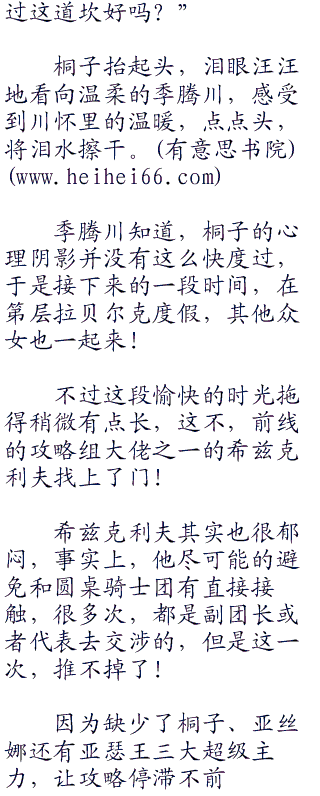 过这道坎好吗？”
桐子抬起头，泪眼汪汪
地看向温柔的季腾川，感受
到川怀里的温暖，点点头，
将泪水擦干。(有意思书院)
(www.heihei66.com)
季腾川知道，桐子的心
理阴影并没有这么快度过，
于是接下来的一段时间，在
第层拉贝尔克度假，其他众
女也一起来！
不过这段愉快的时光拖
得稍微有点长，这不，前线
的攻略组大佬之一的希兹克
利夫找上了门！
希兹克利夫其实也很郁
闷，事实上，他尽可能的避
免和圆桌骑士团有直接接
触，很多次，都是副团长或
者代表去交涉的，但是这一
次，推不掉了！
因为缺少了桐子、亚丝
娜还有亚瑟王三大超级主
力，让攻略停滞不前